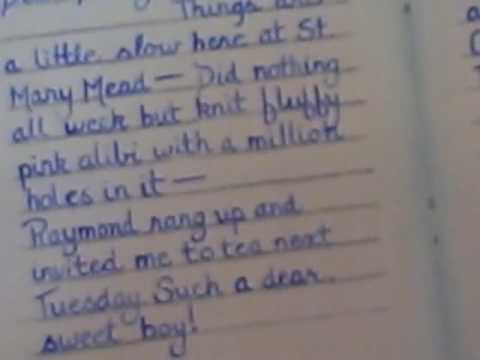 Things are
a little slow here at St.
Mary Mead — Did nothing
all week but knit fluffy
pink alibi with a million
holes in it —
Raymond rang up and
invited me to tea next
Tuesday Such a dear.
sweet boy!